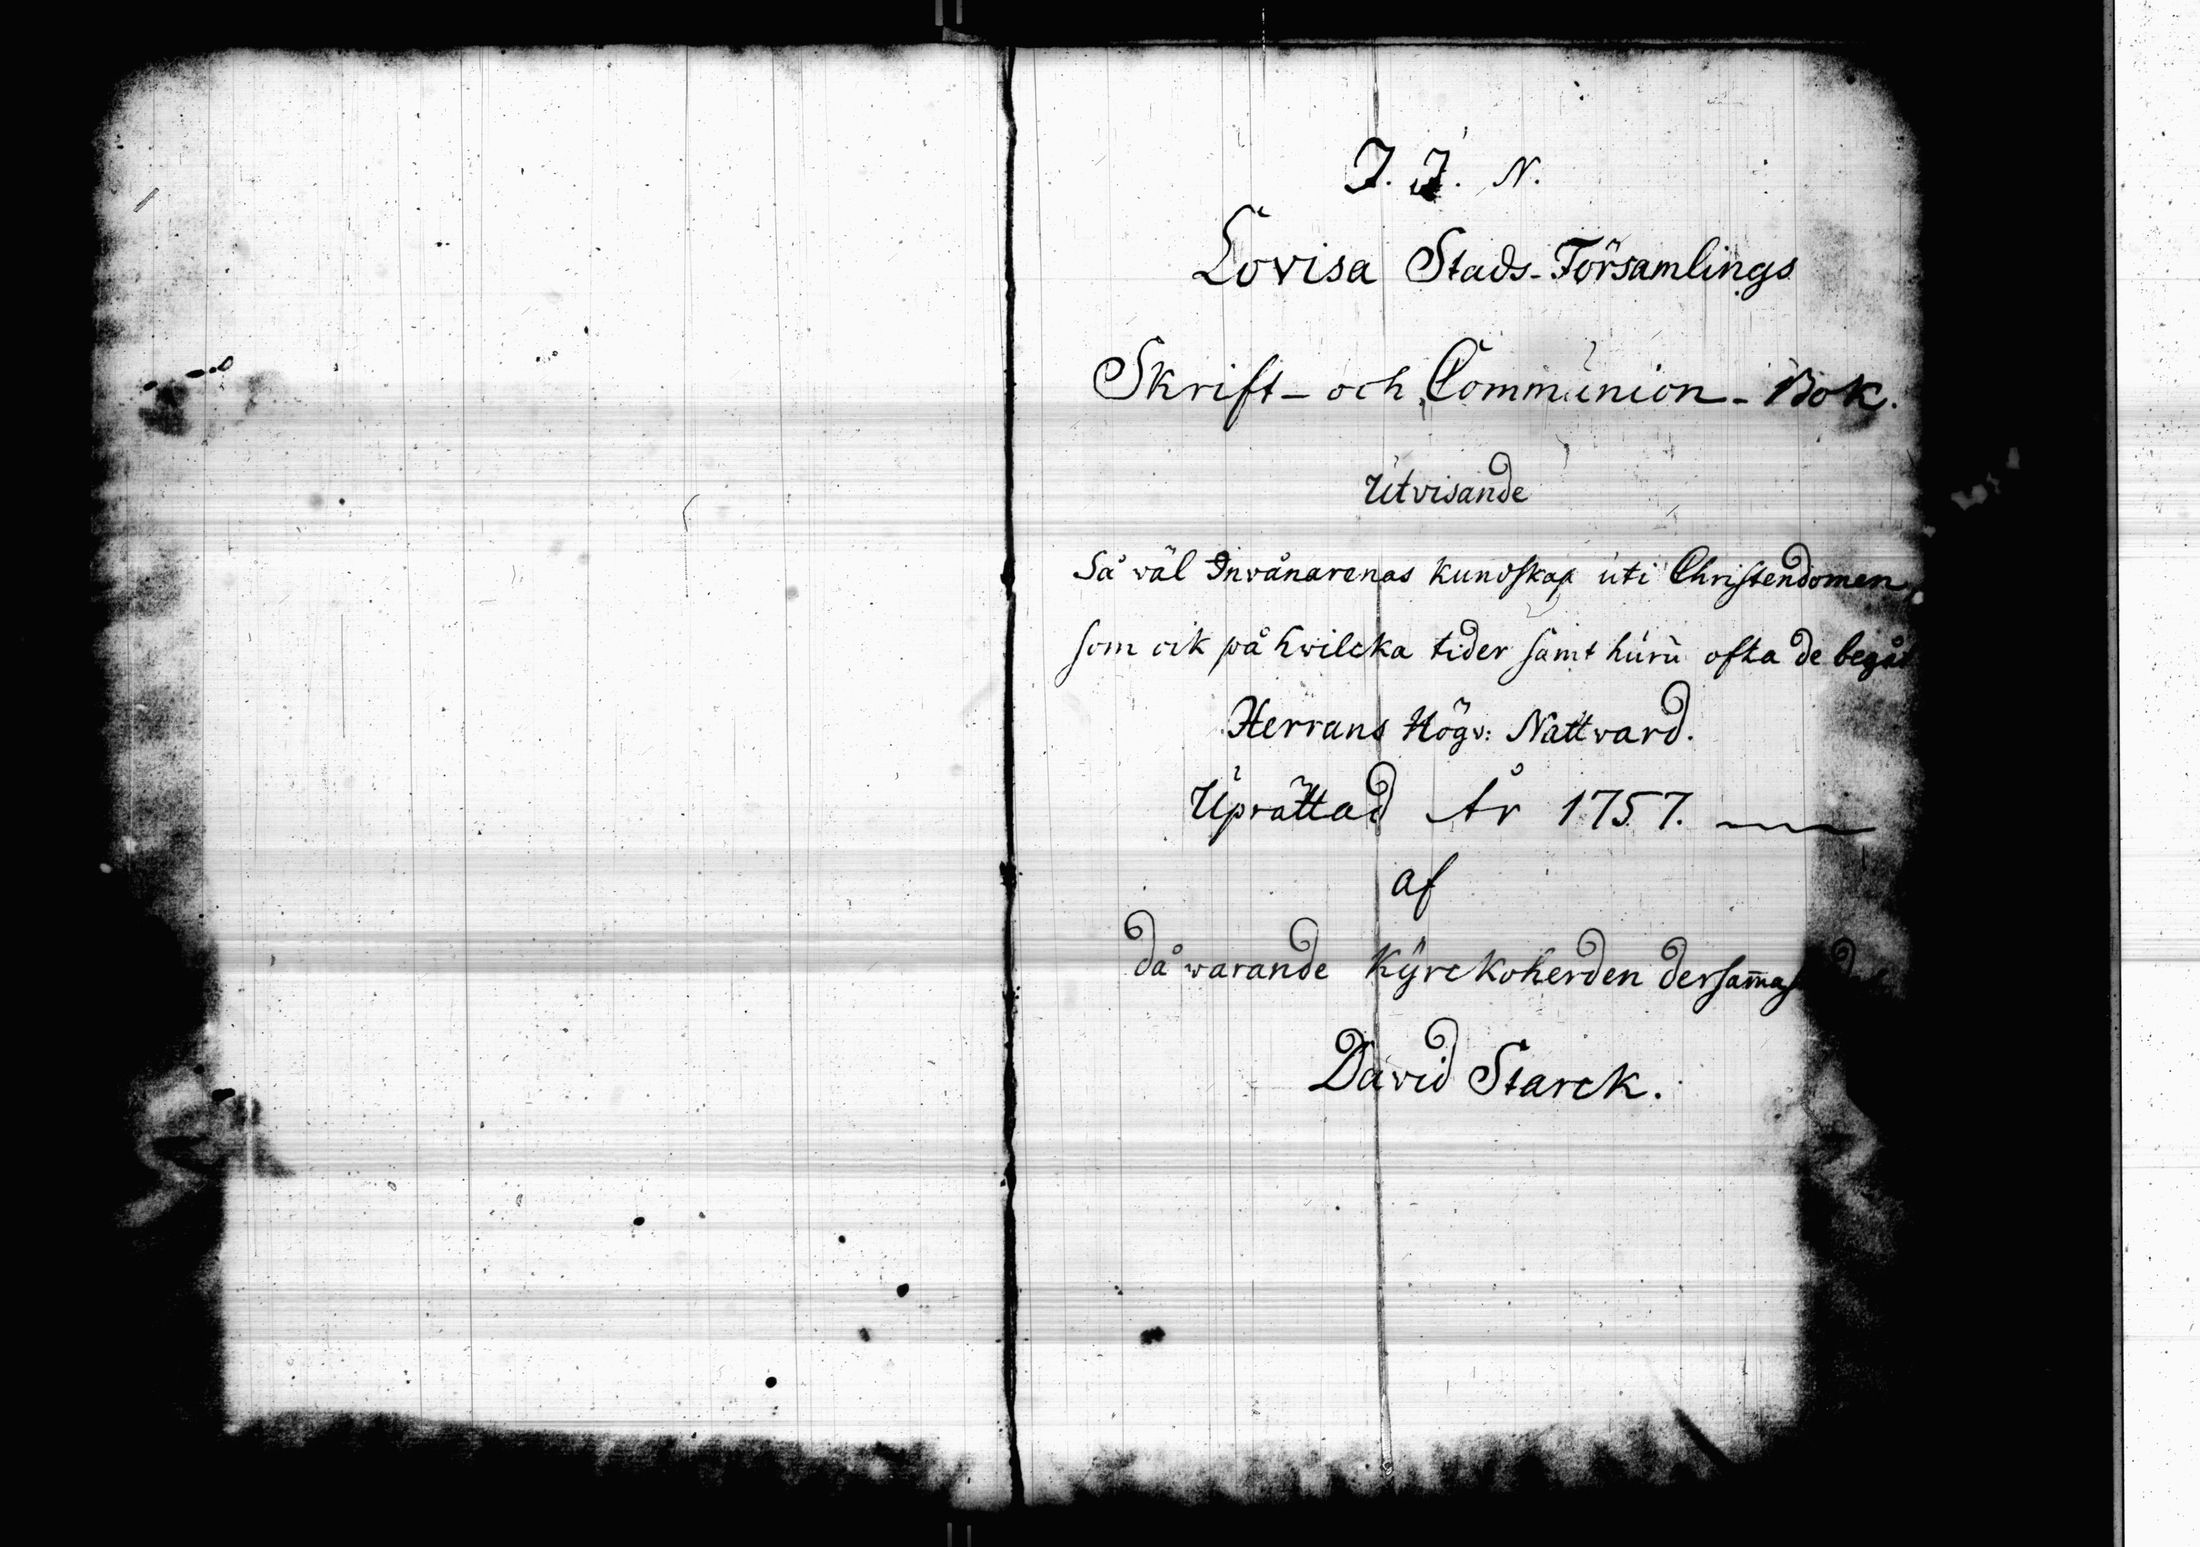 J. J. N.
Lovisa Stads-Församlings
Skrift- och Communion-Bok.
Utvisande
Så väl Invånarenas kundskap uti Christendomen,
som ock på hvilcka tider samt huru ofta de begåt
Herrans Högv: Nattvard.
Uprättad År 1757.
af
då warande Kyrckoherden dersam̄a
David Starck.